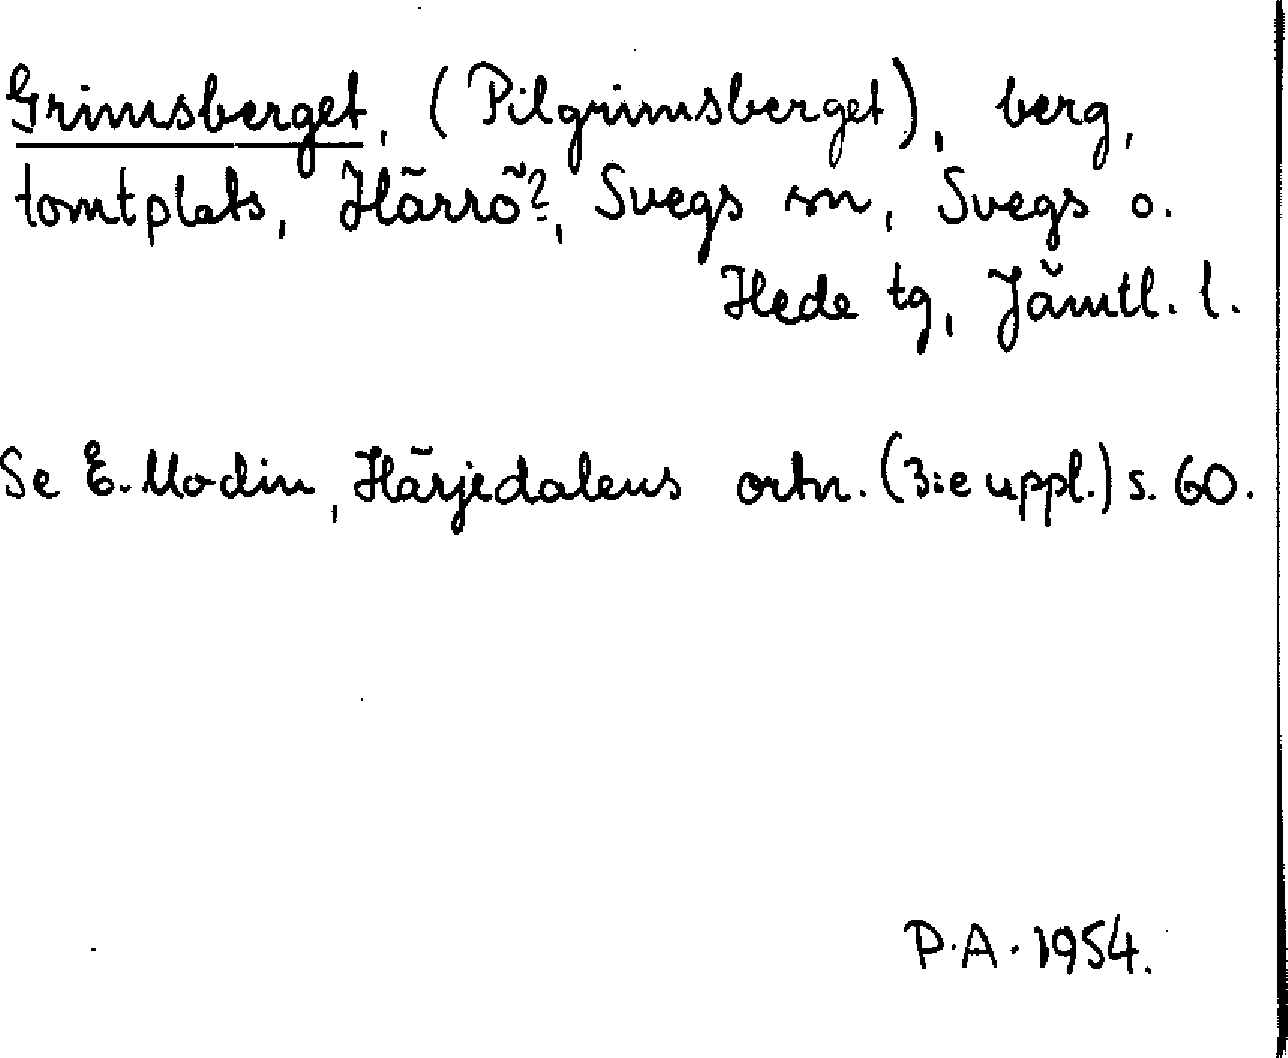 Grimsberget, (Pilgrimsberget), berg,
tomtplats, Härrö?, Svegs sn, Svegs o.
Hede tg, Jämtl. l.
Se E. Modin, Härjedalens ortn. (3:e uppl.) s. 60.
P.A. 1954.